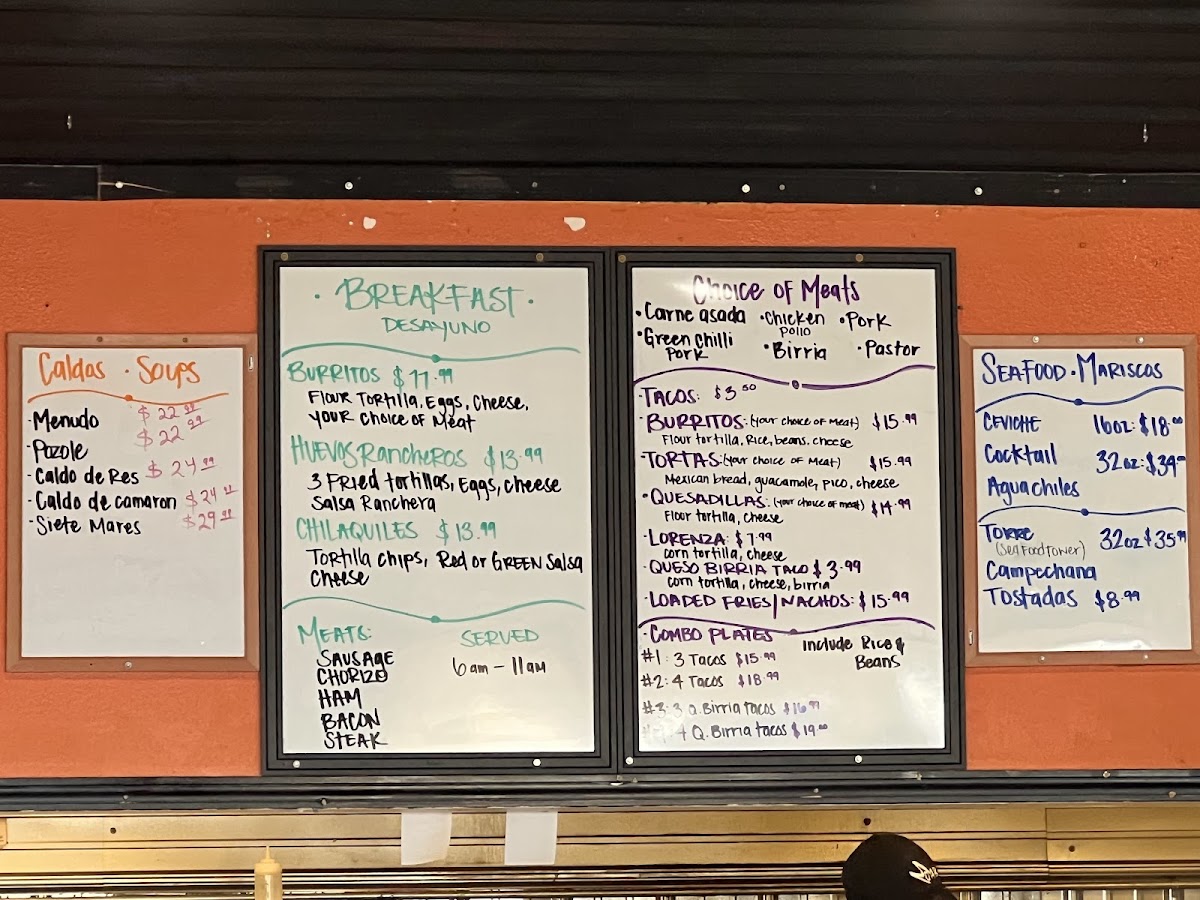 Caldos • Soups
- Menudo $22.99
- Pozole $22.99
- Caldo de Res $24.99
- Caldo de camaron $24.99
- Siete Mares $29.99
• BREAKFAST •
DESAYUNO
BURRITOS $11.99
Flour Tortilla, Eggs, Cheese,
your Choice of Meat
HUEVOS Rancheros $13.99
3 Fried tortillas, Eggs, cheese
Salsa Ranchera
CHILAQUILES $13.99
Tortilla chips, Red or GREEN Salsa
Cheese
MEATS: SERVED
SAUSAGE 6am - 11am
CHORIZO
HAM
BACON
STEAK
Choice of Meats
• Carne asada • Chicken • Pork
Pollo
• Green Chilli • Birria • Pastor
Pork
- TACOS: $3.50
- BURRITOS: (your choice of meat) $15.99
Flour tortilla, Rice, beans, cheese
- TORTAS: (your choice of Meat) $15.99
Mexican bread, guacamole, pico, cheese
• QUESADILLAS: (your choice of meat) $14.99
Flour tortilla, cheese
- LORENZA: $7.99
corn tortilla, cheese
- QUESO BIRRIA TACO $3.99
corn tortilla, cheese, birria
- LOADED FRIES/NACHOS: $15.99
- COMBO PLATES include Rice &
Beans
#1: 3 Tacos $15.99
#2: 4 Tacos $18.99
#3: 3 Q. Birria tacos $16.99
4 Q. Birria tacos $19.00
SEAFOOD • MARISCOS
CEVICHE 16oz: $18.00
Cocktail 32oz: $34
Aguachiles
TORRE 32oz $35.99
(Sea Food Tower)
Campechana
Tostadas $8.99